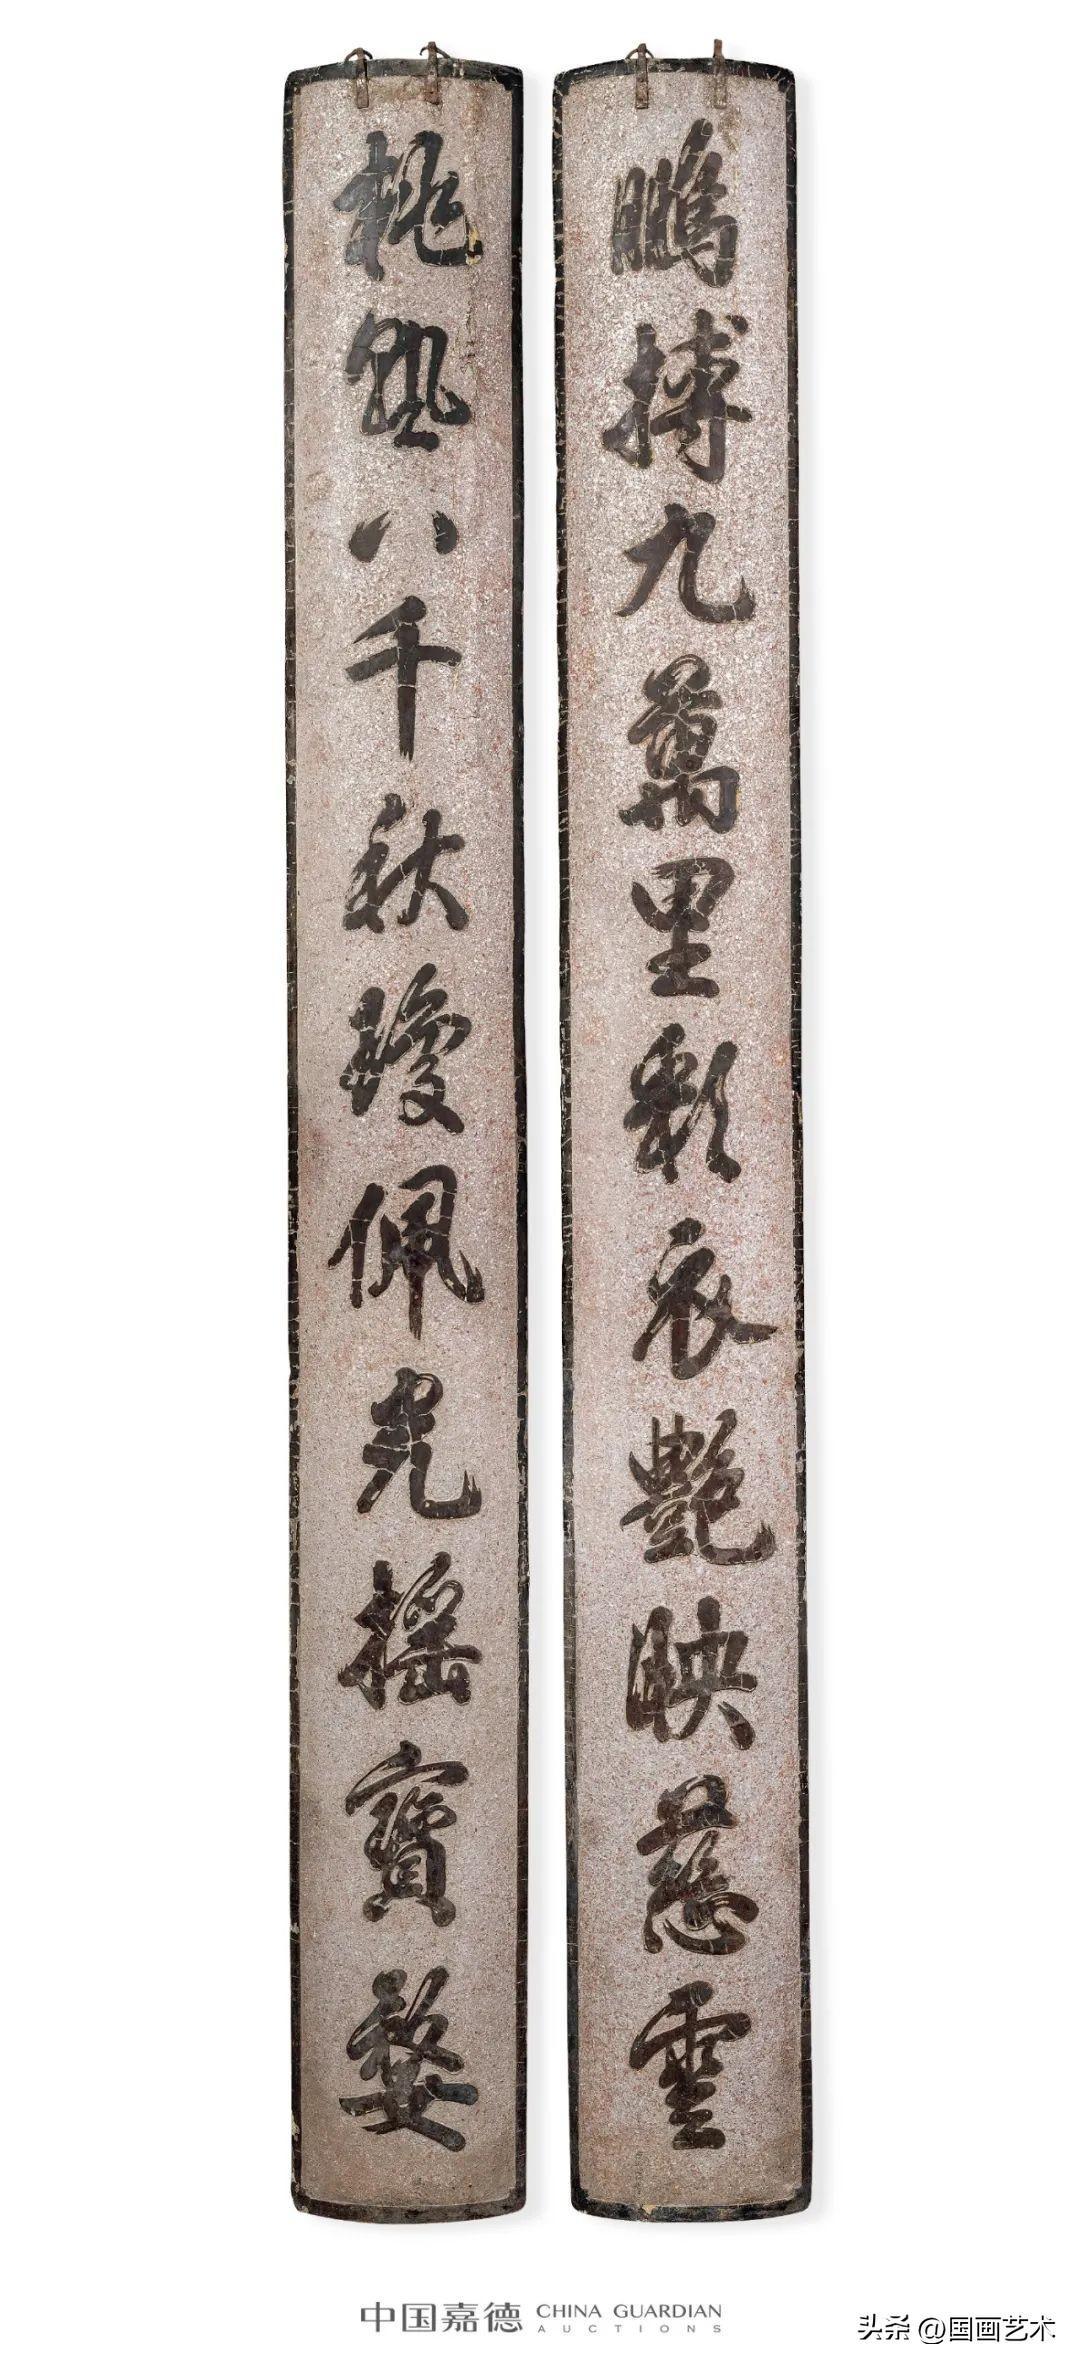 鵬搏九萬里彩衣艷映慈雲
桃熟八千秋瓊佩光搖寶婺
中国嘉德 CHINA GUARDIAN
AUCTIONS
头条 @国画艺术